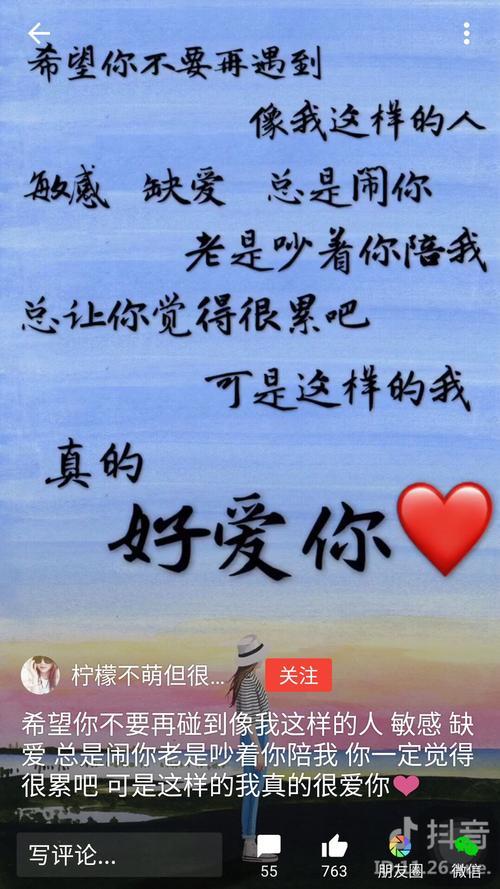 希望你不要再遇到
像我这样的人
敏感 缺爱 总是闹你
老是吵着你陪我
总让你觉得很累吧
可是这样的我
真的
好爱你
柠檬不萌但很...
关注
希望你不要再碰到像我这样的人 敏感 缺
爱 总是闹你老是吵着你陪我 你一定觉得
很累吧 可是这样的我真的很爱你
抖音
写评论...
55
763
朋友圈
微信